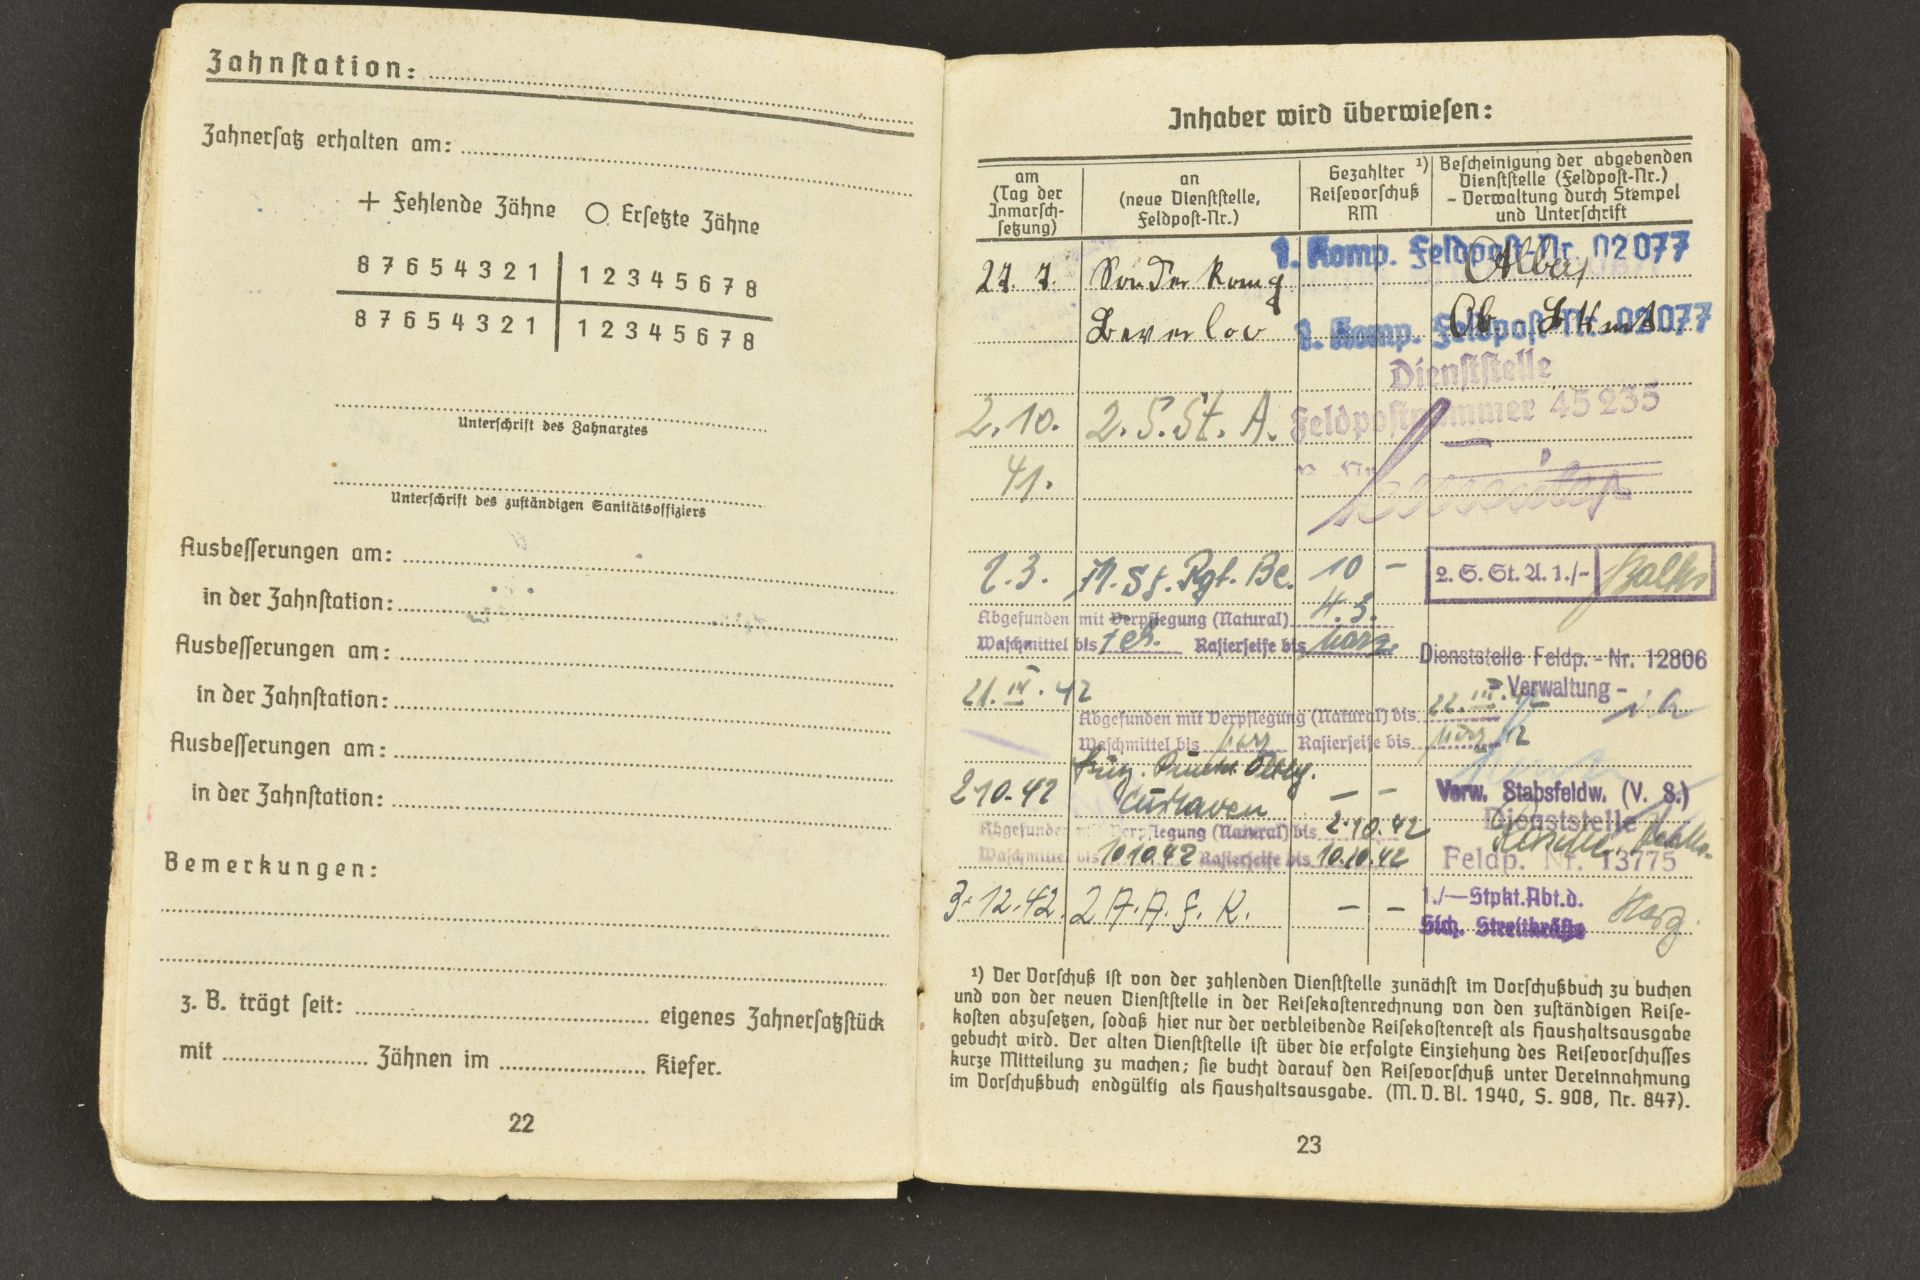 Zahnstation:
Zahnersatz erhalten am:
+ Fehlende Zähne ○ Ersetzte Zähne
8 7 6 5 4 3 2 1 1 2 3 4 5 6 7 8
8 7 6 5 4 3 2 1 1 2 3 4 5 6 7 8
Unterschrift des Zahnarztes
Unterschrift des zuständigen Sanitätsoffiziers
Ausbesserungen am:
in der Zahnstation:
Ausbesserungen am:
in der Zahnstation:
Ausbesserungen am:
in der Zahnstation:
Bemerkungen:
z. B. trägt seit: eigenes Zahnersatzstück
mit Zähnen im Kiefer.
22
Inhaber wird überwiesen:
am (Tag der Inmarsch-setzung)
an (neue Dienststelle, Feldpost-Nr.)
Gezahlter ¹) Reisevorschuß RM
Bescheinigung der abgebenden Dienststelle (Feldpost-Nr.) - Verwaltung durch Stempel und Unterschrift
1. Komp. Feldpost-Nr. 02077
27. 7.
Beverloo
1. Komp. Feldpost-Nr. 02077
Dienststelle
2.10. 2. S. St. A. Feldpostnummer 45 235
41.
2.3. Rgt. Be. 10 - 2. S. St. A. 1./-
Abgefunden mit Verpflegung (Natural) 4.3.
Waschmittel bis Rasierseife bis März
Dienststelle Feldp. - Nr. 12806
- Verwaltung -
21. IV. 42
Abgefunden mit Verpflegung (Natural) bis 22. III. 42
Waschmittel bis März Rasierseife bis März 42
Verw. Stabsfeldw. (V. S.)
2.10.42 Cuxhaven - -
Dienststelle
Abgefunden mit Verpflegung (Natural) bis 2.10.42
Feldp. Nr. 13775
Waschmittel bis 10.10.42 Rasierseife bis 10.10.42
3.12.42. 2 A. A. S. K. - - 1./—Stpkt.Abt.d.
Sich. Streitkräfte
¹) Der Vorschuß ist von der zahlenden Dienststelle zunächst im Vorschußbuch zu buchen
und von der neuen Dienststelle in der Reisekostenrechnung von den zuständigen Reise-
kosten abzusetzen, sodaß hier nur der verbleibende Reisekostenrest als Haushaltsausgabe
gebucht wird. Der alten Dienststelle ist über die erfolgte Einziehung des Reisevorschusses
kurze Mitteilung zu machen; sie bucht darauf den Reisevorschuß unter Vereinnahmung
im Vorschußbuch endgültig als Haushaltsausgabe. (M. V. Bl. 1940, S. 908, Nr. 847).
23